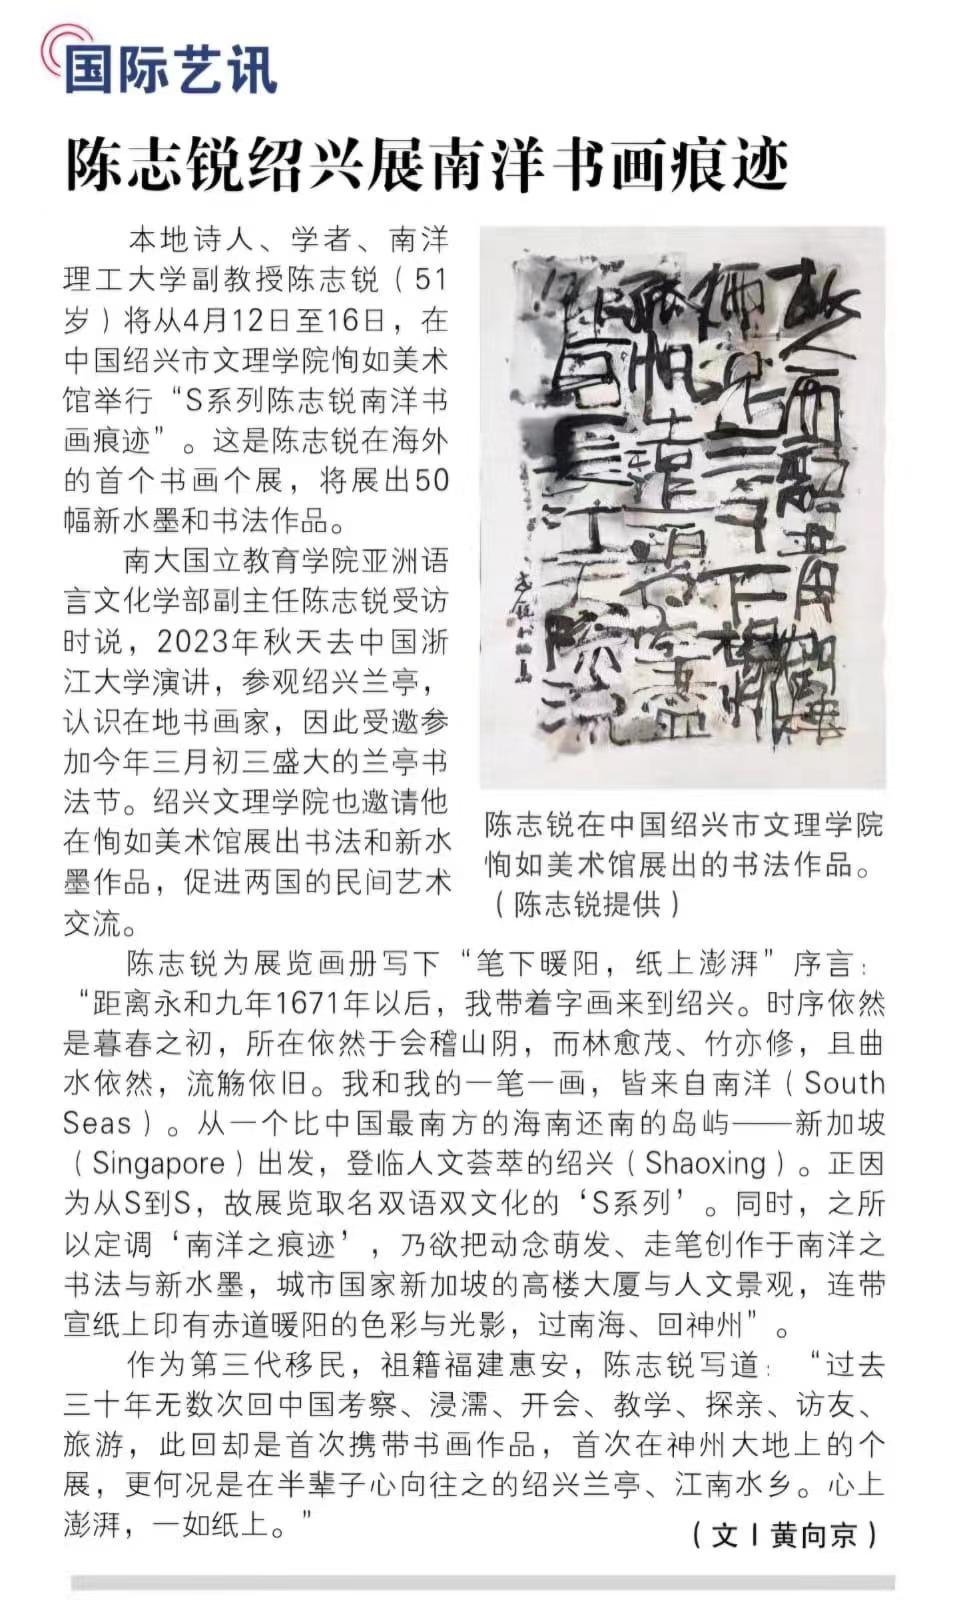 国际艺讯
陈志锐绍兴展南洋书画痕迹
本地诗人、学者、南洋
理工大学副教授陈志锐（51
岁）将从4月12日至16日，在
中国绍兴市文理学院恂如美术
馆举行“S系列陈志锐南洋书
画痕迹”。这是陈志锐在海外
的首个书画个展，将展出50
幅新水墨和书法作品。
南大国立教育学院亚洲语
言文化学部副主任陈志锐受访
时说，2023年秋天去中国浙
江大学演讲，参观绍兴兰亭，
认识在地书画家，因此受邀参
加今年三月初三盛大的兰亭书
法节。绍兴文理学院也邀请他
在恂如美术馆展出书法和新水
墨作品，促进两国的民间艺术
交流。
陈志锐在中国绍兴市文理学院
恂如美术馆展出的书法作品。
（陈志锐提供）
陈志锐为展览画册写下“笔下暖阳，纸上澎湃”序言：
“距离永和九年1671年以后，我带着字画来到绍兴。时序依然
是暮春之初，所在依然于会稽山阴，而林愈茂、竹亦修，且曲
水依然，流觞依旧。我和我的一笔一画，皆来自南洋（South
Seas）。从一个比中国最南方的海南还南的岛屿——新加坡
（Singapore）出发，登临人文荟萃的绍兴（Shaoxing）。正因
为从S到S，故展览取名双语双文化的‘S系列’。同时，之所
以定调‘南洋之痕迹’，乃欲把动念萌发、走笔创作于南洋之
书法与新水墨，城市国家新加坡的高楼大厦与人文景观，连带
宣纸上印有赤道暖阳的色彩与光影，过南海、回神州”。
作为第三代移民，祖籍福建惠安，陈志锐写道：“过去
三十年无数次回中国考察、浸濡、开会、教学、探亲、访友、
旅游，此回却是首次携带书画作品，首次在神州大地上的个
展，更何况是在半辈子心向往之的绍兴兰亭、江南水乡。心上
澎湃，一如纸上。”
（文｜黄向京）